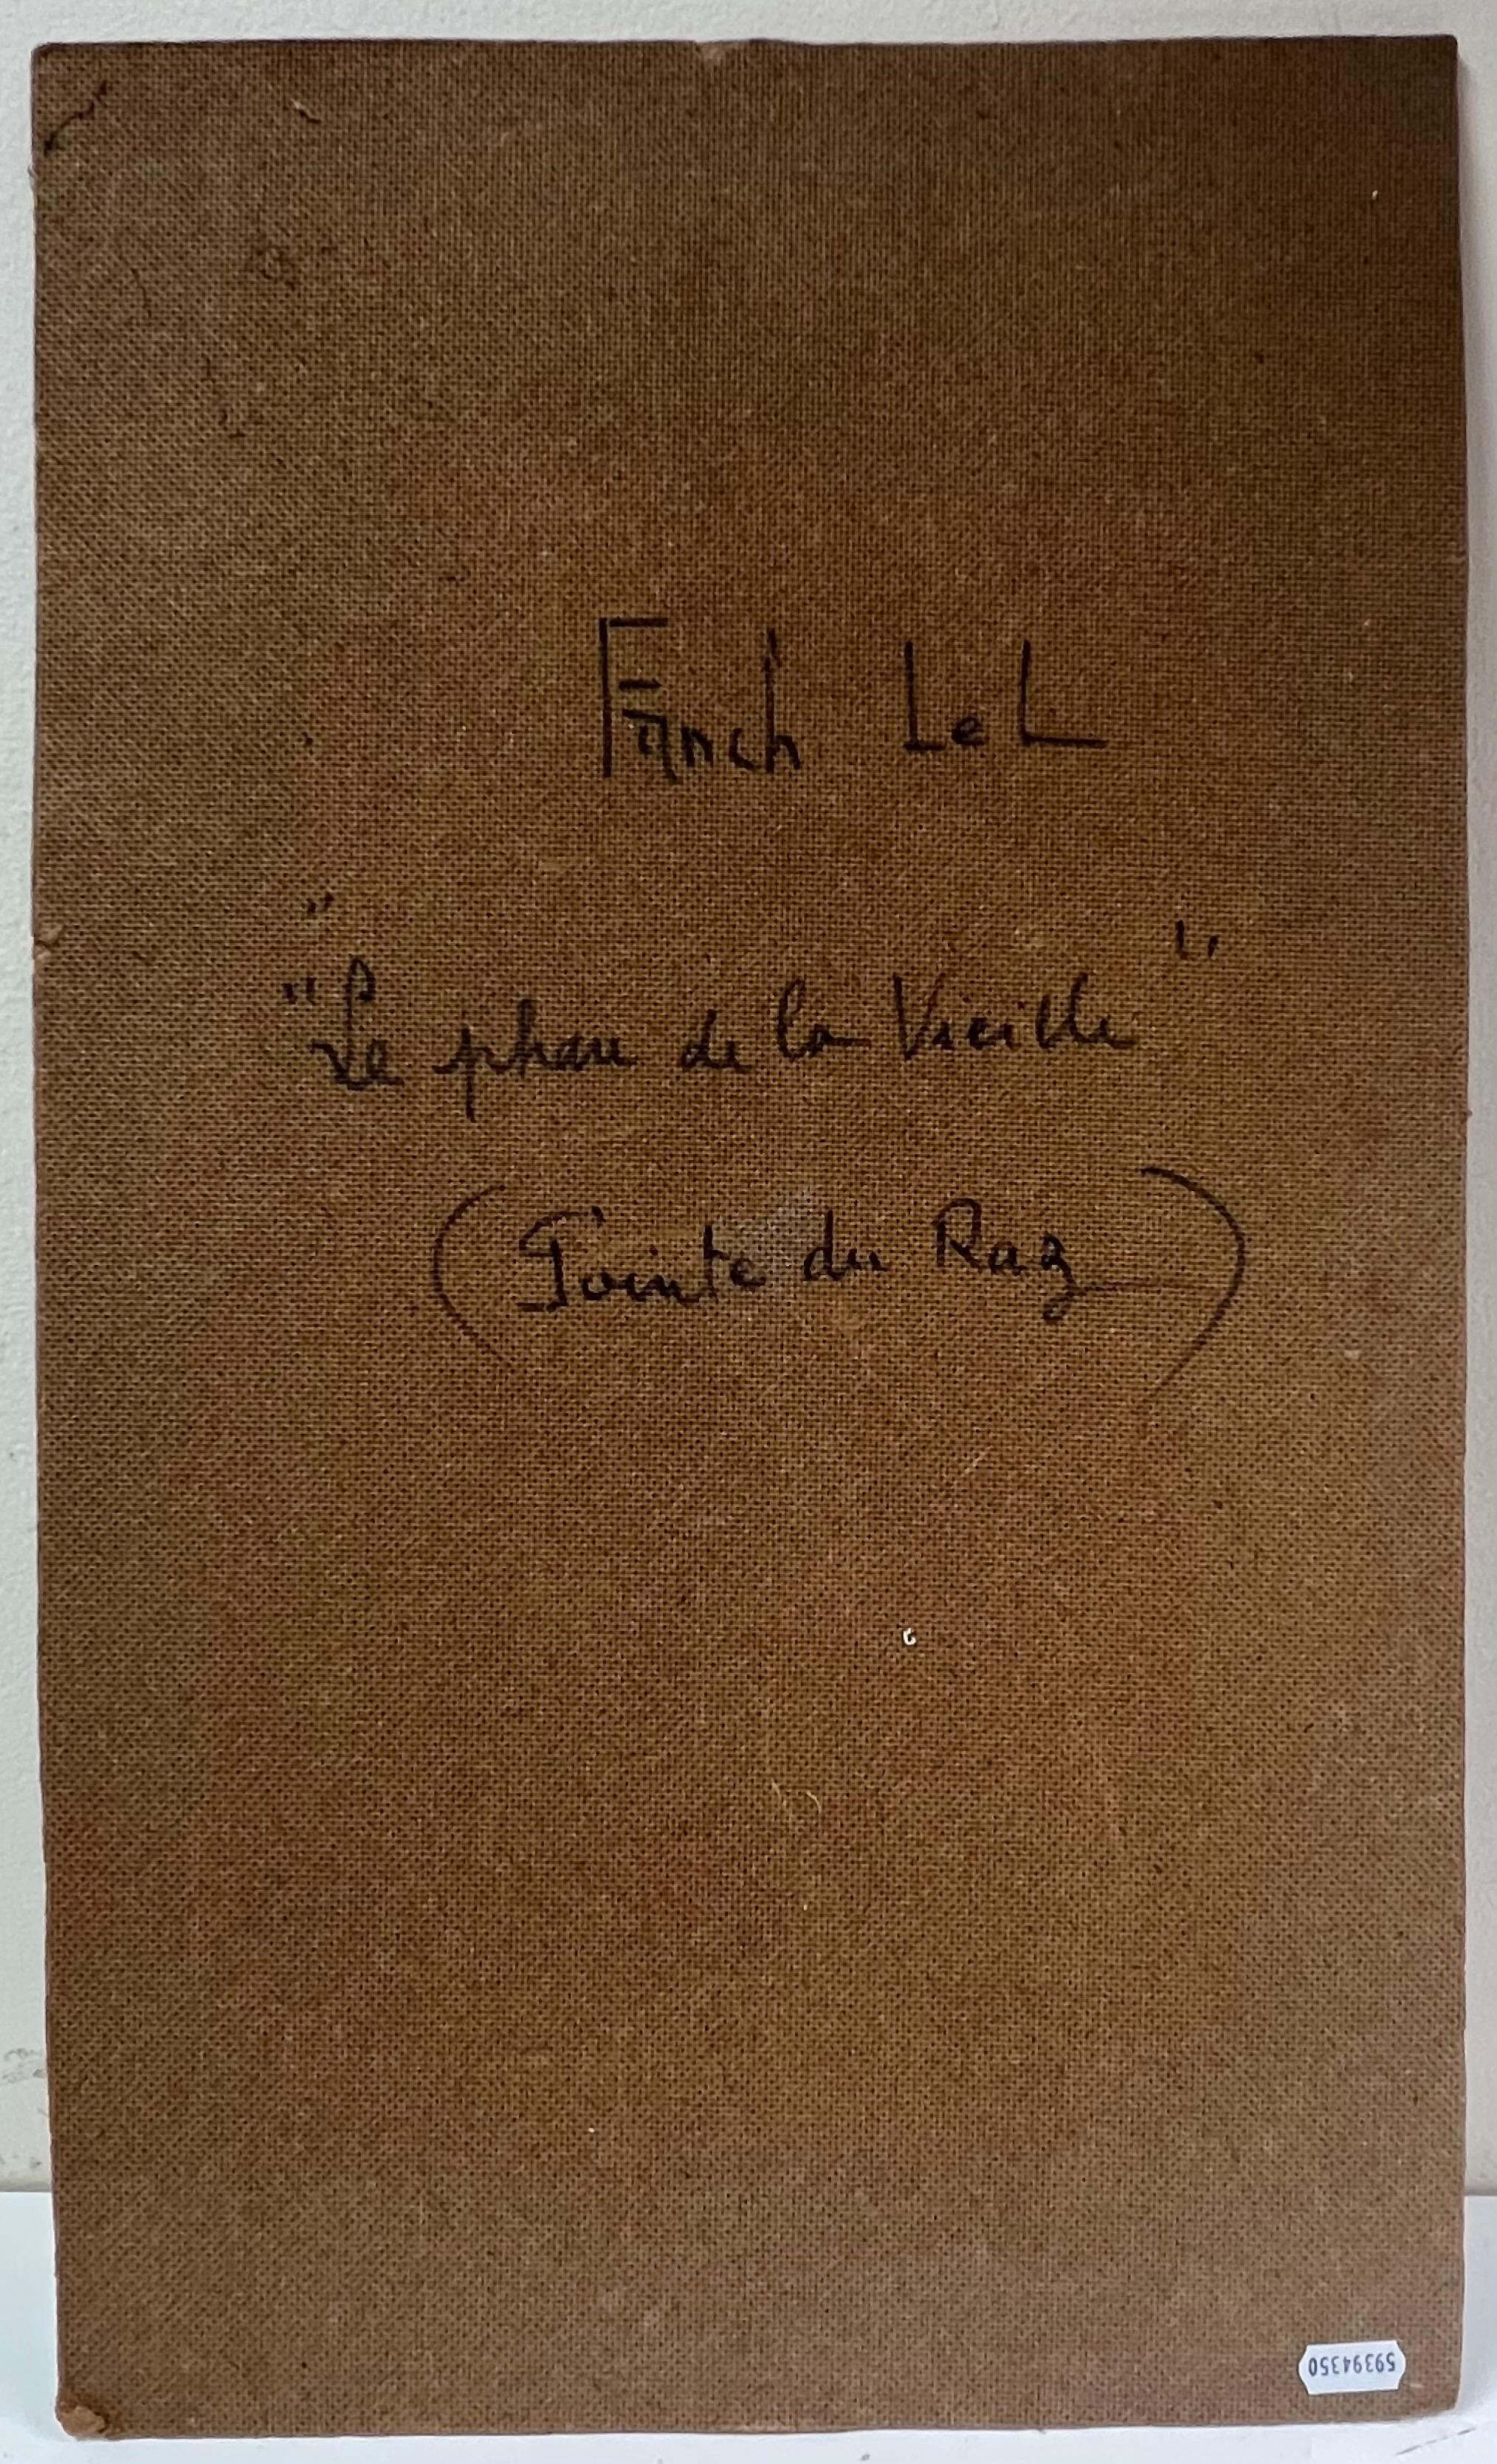 Fanch LeL
"Le phare de la Vieille"
(Pointe du Raz)
59394350